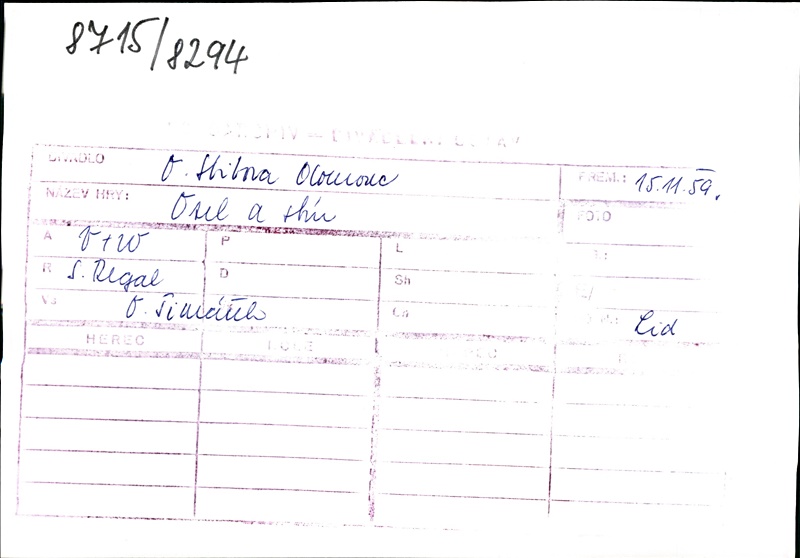 8715/8294
DIVADLO O. Stibora Olomouc PREM.: 15.11.59.
NÁZEV HRY: Osel a stín FOTO
A V+W P L
R S. Regal D Sh
O. Šimáček Ch Lid
HEREC ROLE